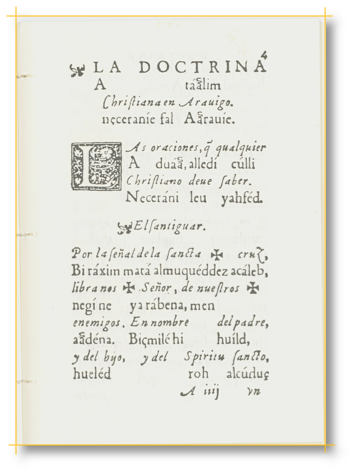 4
LA DOCTRINA
A taālim
Chriſtiana en Arauigo.
neceranie fal Aārauie.
LAs oraciones, q̃ qualquier
A duaā, alledí culli
Chriſtiano deue ſaber.
Neceráni leu yahféd.
El ſantiguar.
Por la ſeñal de la ſancta ✠ cruz,
Bi ráxim matá almuquéddez acáleb,
libra nos ✠ Señor, de nueſtros ✠
negí ne ya rábena, men
enemigos. En nombre del padre,
déna. Biçmilé hi huild,
y del hijo, y del Spiritu ſancto,
hueléd roh alcúduç
A iiij vn